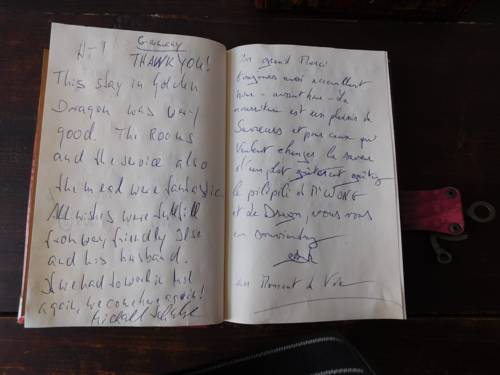 Germany
THANK YOU!
This stay in Golden
Dragon was very
good. The Rooms
and the service also
the mead were fantastic
All wishes were fulfill
from way friendly Ilse
and his husband.
If we had to work in
again, we come here again!
Michael
Un grand Merci
toujours aussi accueillant
La
nourriture est un plaisir de
Saveurs et pour ceux qui
Veulent changer la saveur
d'un plat
le pilipili de Mr WONG
et de Dragon, vous vous
en souviendrez
un Moment de Vie